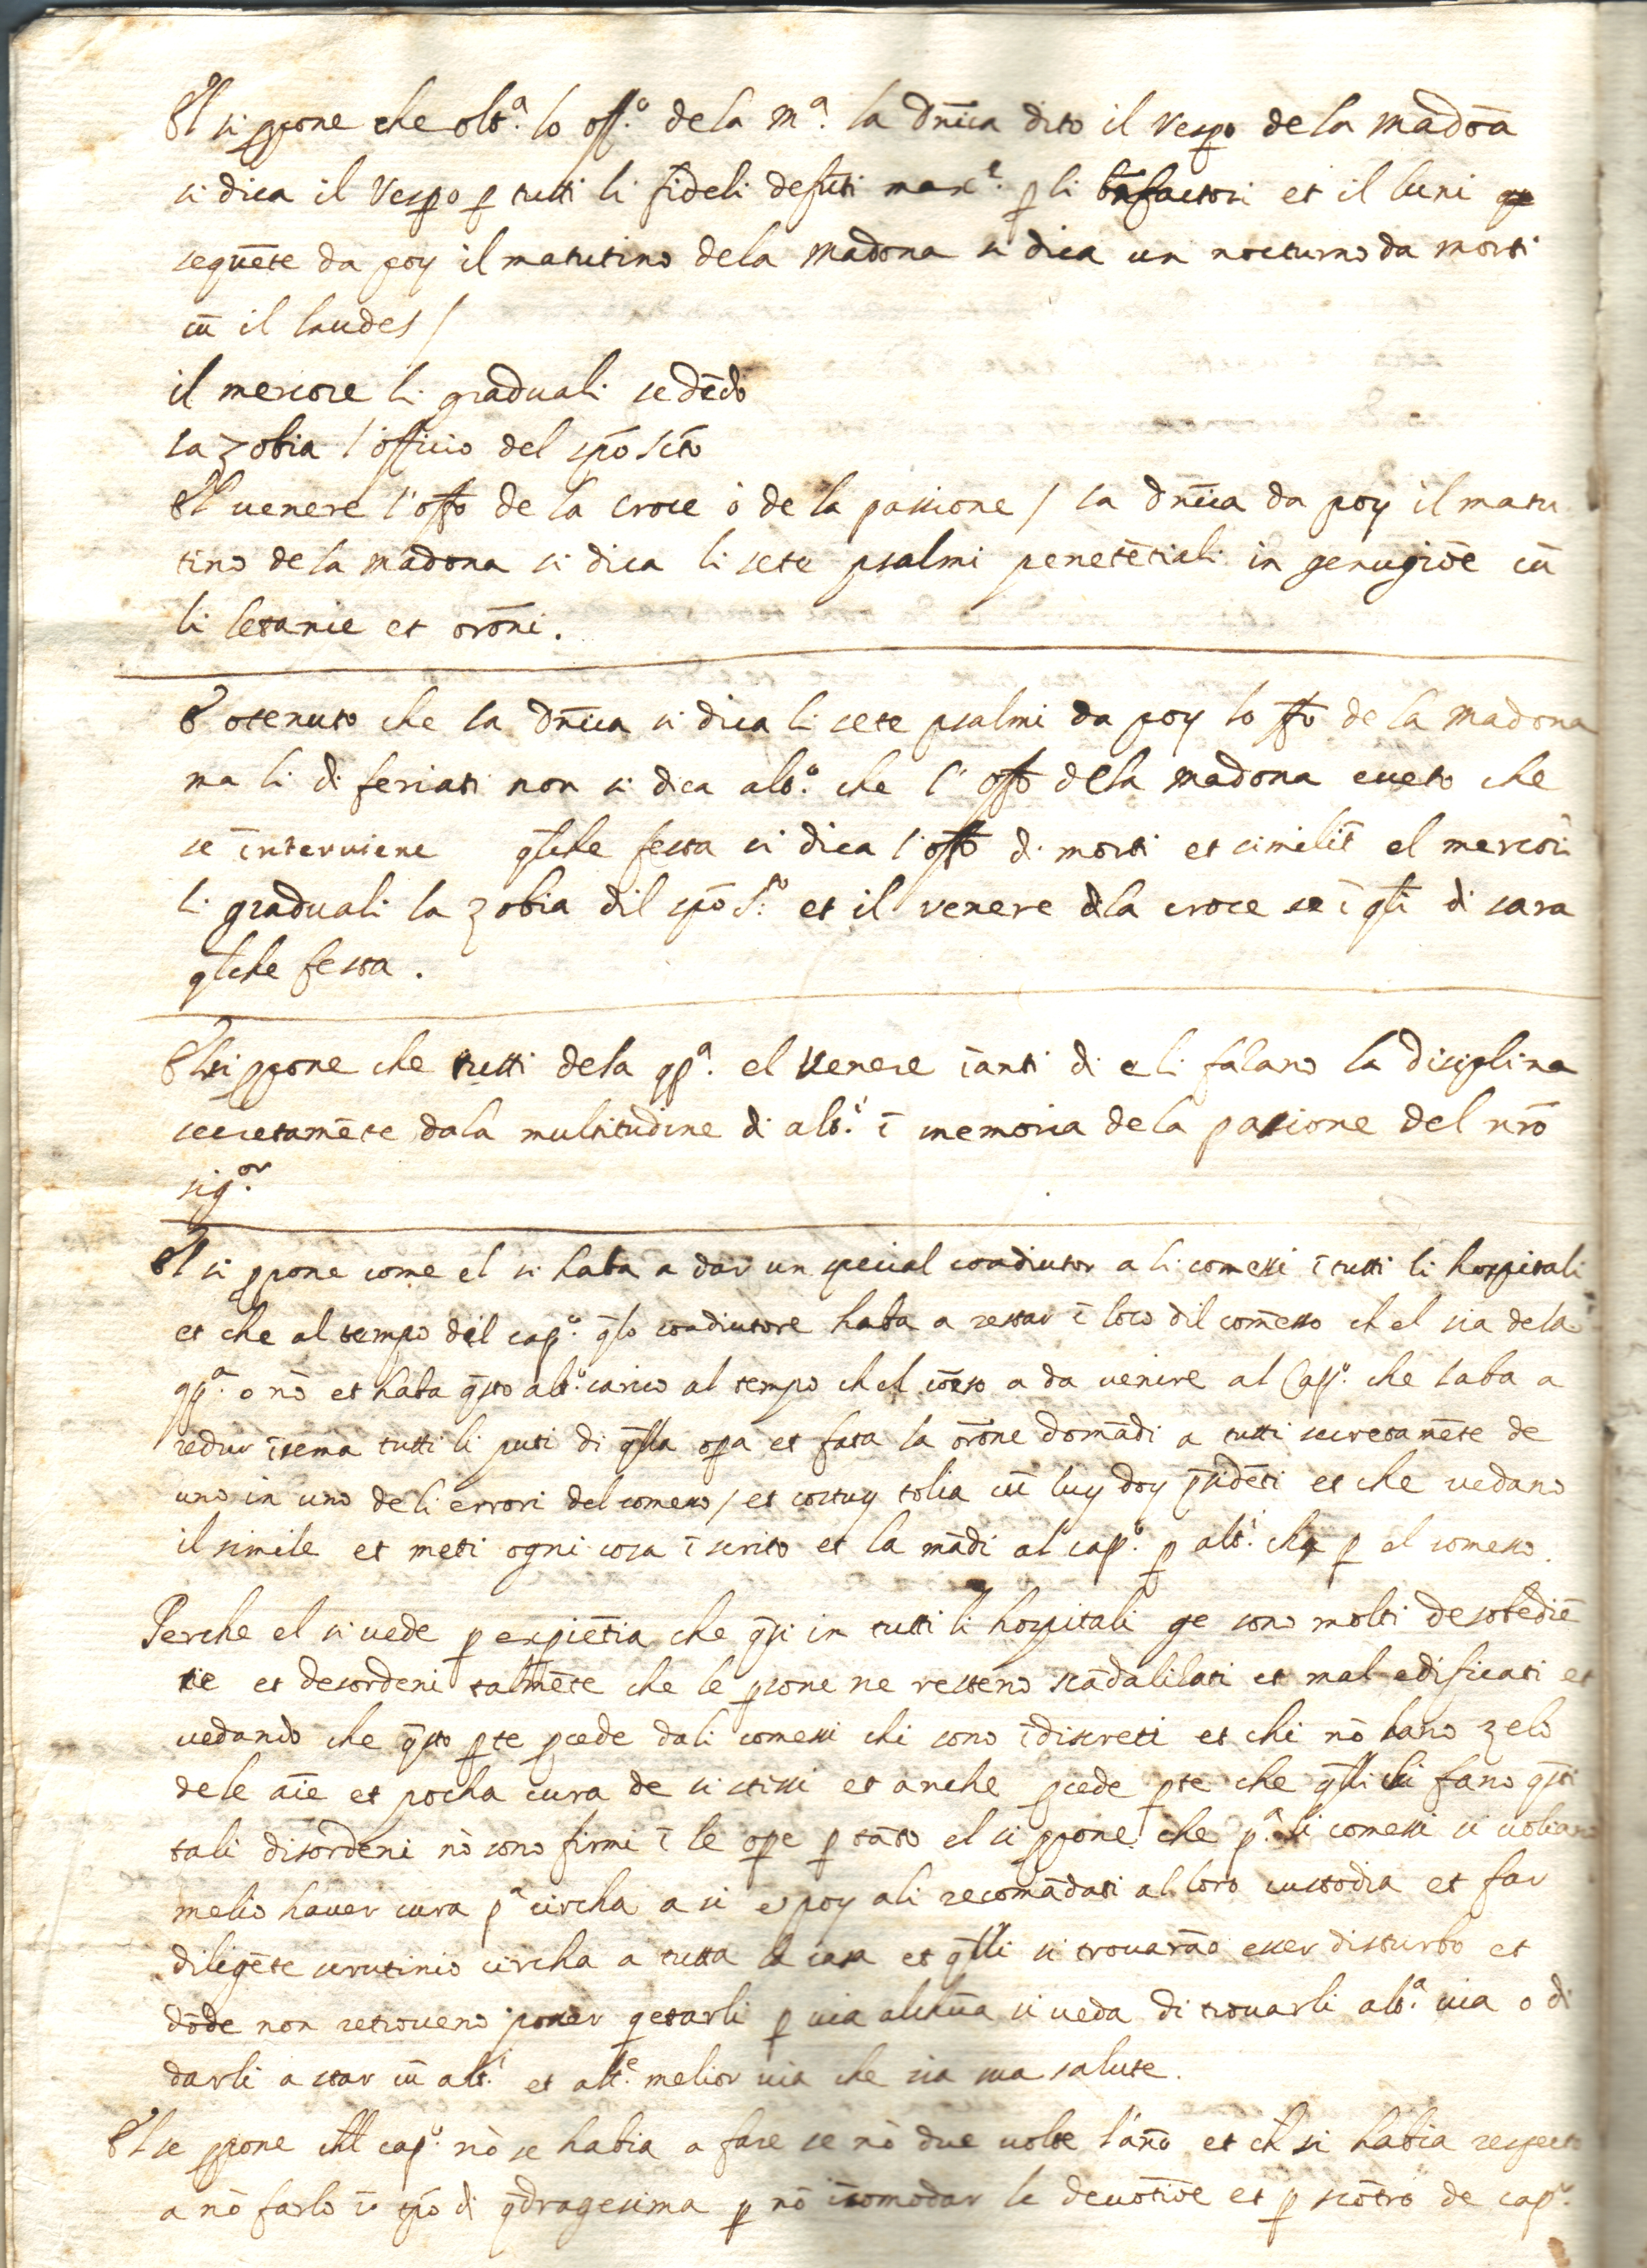 El si ꝓpone che olt.ª lo off.º de la M.ª la dn̄ica dito il Vespo de la madōa
si dica il Vespo ꝑ tutti li fideli defūti max.e ꝑ li bn̄factori et il luni
seguēte da poy il matutino dela madona si dica un nocturno da morti
cū il laudes /
il mercore li graduali sedēdo
la zobia l'officio del spō sctō
El venere l'offo de la croce ò de la passione / la dn̄ica da poy il matu
tino de la madona si dica li sete psalmi penetētiali in genugiōe cū
li letanie et orōni.
E otenuto che la dn̄ica si dica li sete psalmi da poy lo offo de la madona
ma li di feriati non si dica alt.º che l'offo dela madona eceto che
se īnterviene q̄lche festa si dica l'offo di morti et similit̄ el mercori
li graduali la zobia dil spō S.to et il venere dla croce se ī q̄li di sara
q̄lche festa.
El si ꝓpone che tutti dela ꝯp.ª el venere īanti di e li falano la disciplina
secretamēte dala multitudine di alt.i ī memoria dela passione del nr̄o
sig.or
El si ꝓpone come el si haba a dar un special coadiutor a li comessi ī tutti li hospitali
et che al tempo del cap.º q̄lo coadiutore haba a restar ī loco dil comēsso ch el sia dela
ꝯp.ª o nō et haba q̄sto alt.º carico al tempo ch el cōeso a da venire al Cap.º che laba a
redur īsema tutti li puti di q̄lla opa et fata la orōne domādi a tutti secretamēte de
uno in uno de li errori del comesso / et costuy tolia cū luy doy p̄sidēti et che vedano
il simile et meti ogni cosa ī scrito et la mādi al cap.º ꝑ alt.i cha ꝑ el comesso.
Perche el si vede ꝑ expiētia che q̄si in tutti li hospitali ge sono molti desobediē
tie et desordeni talmēte che le ꝑsone ne resteno scādalilati et mal edificati et
vedando che q̄sto ꝑte ꝓcede dali comessi chi sono īdiscreti et chi nō hano zelo
dele aīe et pocha cura de si stissi et anche ꝓcede ꝑte che q̄lli chi fano q̄sti
tali disordeni nō sono firmi ī le ope ꝑ tāto el si ꝓpone che p.ª li comessi si voliano
melio haver cura p.ª circha a si e poy ali recomādati al loro custodia et far
diligēte scrutinio circha a tutta la casa et q̄lli si trovarāo esser disturbo et
dōde non retroveno poder getarli ꝑ via alchūa si veda di trovarli alt.ª via o di
darli a star cū alt.i et alt.e melior via che sia sua salute.
El se ꝓpone chel cap.º nō se habia a fare se nō due volte l'āno et ch̄ si habia respecto
a nō farlo ī tp̄o di q̄dragesima ꝑ nō īcomodar le devotiōe et ꝑ scōtro de cap.º